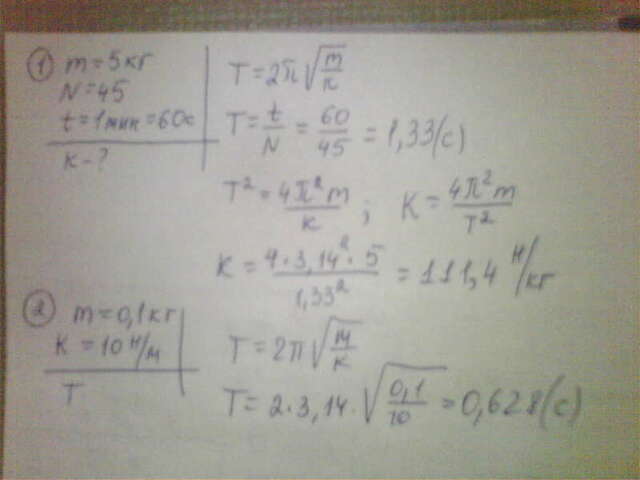 ① m = 5 кг
N = 45
t = 1 мин = 60с
к - ?
T = 2π√(m/к)
T = t/N = 60/45 = 1,33(с)
T² = 4π²m/к ; K = 4π²m/T²
K = 4·3,14²·5/1,33² = 111,4 Н/кг
② m = 0,1 кг
K = 10 Н/м
T
T = 2π√(м/к)
T = 2·3,14·√(0,1/10) = 0,628(с)